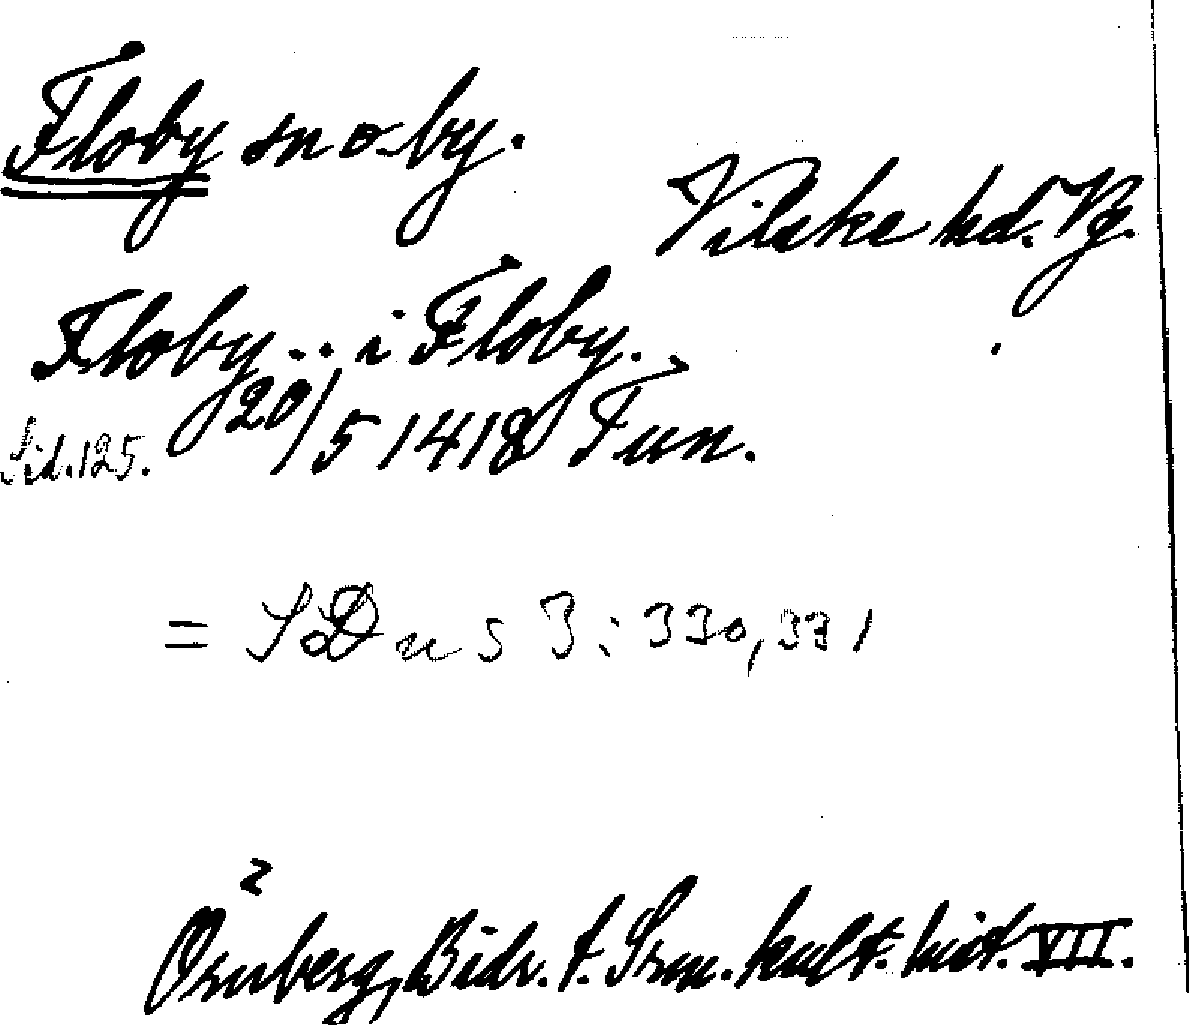 Floby sn o. by.
Vilske hd. Vg.
Floby .. i Floby.
20/5 1418 Tun.
Sid. 125.
= SD ns 3: 330, 331
Örnberg, Bidr. t. Srm. kult. hist. VII.